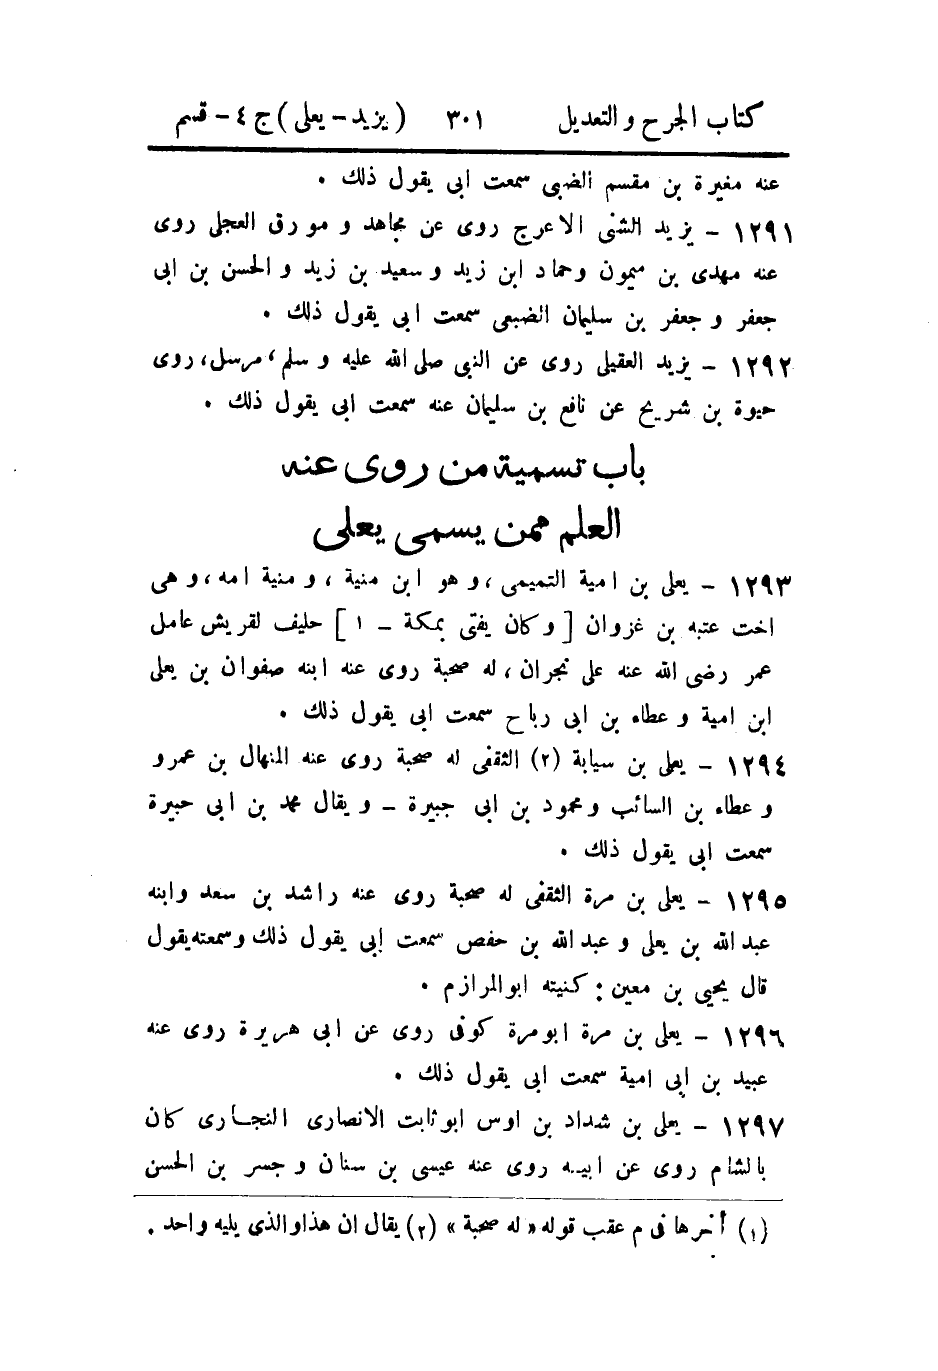 كتاب الجرح و التعديل ٣٠١ (يزيد - يعلى) ج ٤ - قسم
عنه مغيرة بن مقسم الضبى سمعت ابى يقول ذلك .
١٢٩١ - يزيد الشنى الاعرج روى عن مجاهد و مورق العجلى روى
عنه مهدى بن ميمون وحماد ابن زيد و سعيد بن زيد و الحسن بن ابى
جعفر و جعفر بن سليمان الضبعى سمعت ابى يقول ذلك .
١٢٩٢ - يزيد العقيلى روى عن النبى صلى الله عليه و سلم، مرسل، روى
حيوة بن شريح عن نافع بن سليمان عنه سمعت ابى يقول ذلك .
باب تسمية من روى عنه
العلم ممن يسمى يعلى
١٢٩٣ - يعلى بن امية التميمى، و هو ابن منية ، و منية امه، و هى
اخت عتبه بن غزوان [ وكان يفتى بمكة - ١ ] حليف لقريش عامل
عمر رضى الله عنه على نجران ، له صحبة روى عنه ابنه صفوان بن يعلى
ابن امية و عطاء بن ابى رباح سمعت ابى يقول ذلك .
١٢٩٤ - يعلى بن سيابة (٢) الثقفى له صحبة روى عنه المنهال بن عمرو
و عطاء بن السائب ومحمود بن ابى جبيرة - و يقال محمد بن ابى حبيرة
سمعت ابى يقول ذلك .
١٢٩٥ - يعلى بن مرة الثقفى له صحبة روى عنه راشد بن سعد وابنه
عبد الله بن يعلى و عبد الله بن حفص سمعت ابى يقول ذلك وسمعته يقول
قال يحيى بن معين : كنيته ابو المرازم .
١٢٩٦ - يعلى بن مرة ابو مرة كوفى روى عن ابى هريرة روى عنه
عبيد بن ابى امية سمعت ابى يقول ذلك .
١٢٩٧ - يعلى بن شداد بن اوس ابو ثابت الانصارى النجارى كان
بالشام روى عن ابيه روى عنه عيسى بن سنان و جسر بن الحسن
(١) أخرها فى م عقب قوله « له صحبة » (٢) يقال ان هذا والذى يليه واحد .